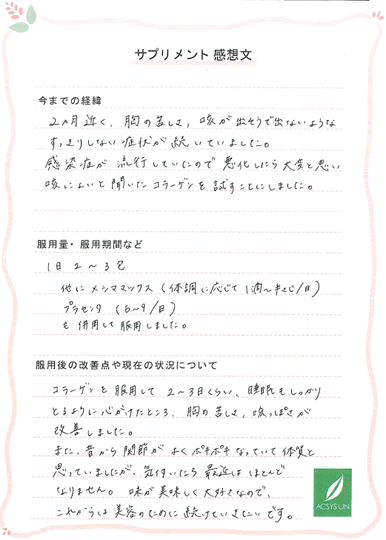 サプリメント 感想文
今までの経緯
2ヵ月近く、胸の苦しさ、咳が出そうで出ないような
すっきりしない症状が続いていました。
感染症が流行していたので悪化したら大変と思い
咳によいと聞いたコラーゲンを試すことにしました。
服用量・服用期間など
1日2〜3包
他にメシマックス(体調に応じて1滴〜
プラセンタ(6〜9/日)
も併用して服用しました。
服用後の改善点や現在の状況について
コラーゲンを服用して2〜3日くらい、睡眠もしっかり
とるように心がけたところ、胸の苦しさ、咳っぽさが
改善しました。
また、昔から関節がよくポキポキなっていて体質と
思っていましたが、気付いたら最近はほとんど
なりません。味が美味しく大好きなので、
これからは美容のために続けていきたいです。
ACSYSUN